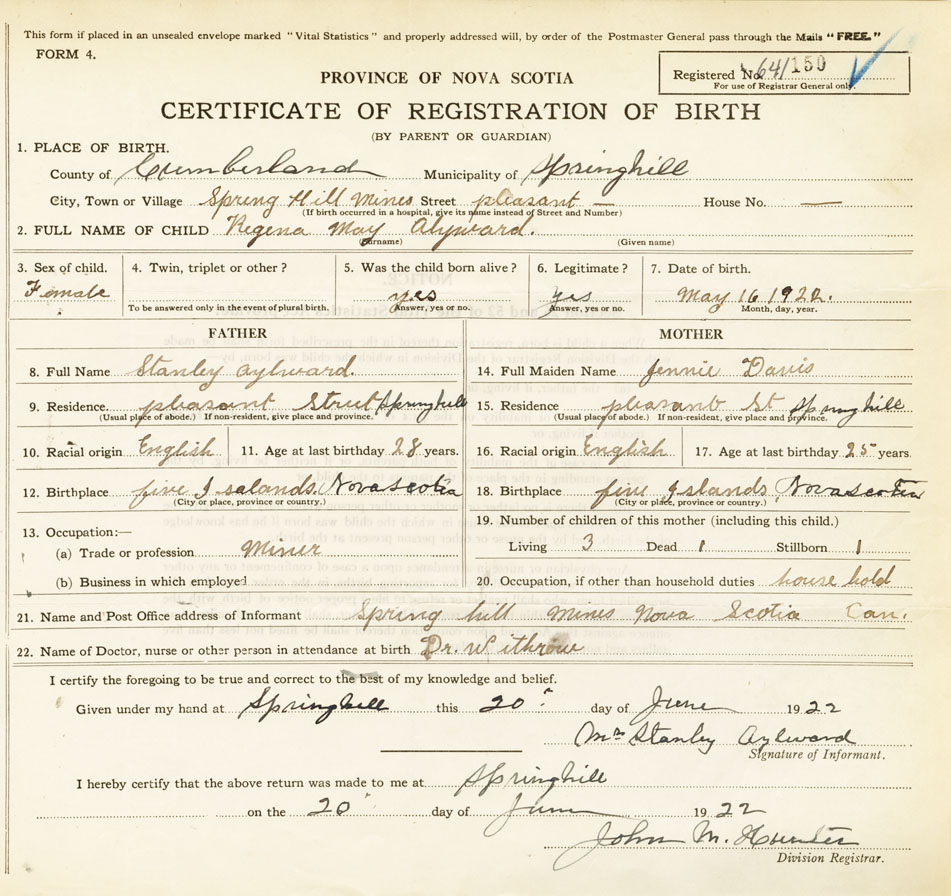 This form if placed in an unsealed envelope marked "Vital Statistics" and properly addressed will, by order of the Postmaster General pass through the Mails "FREE."
FORM 4.
Registered No. 64/150
For use of Registrar General only.
PROVINCE OF NOVA SCOTIA
CERTIFICATE OF REGISTRATION OF BIRTH
(BY PARENT OR GUARDIAN)
1. PLACE OF BIRTH.
County of Cumberland Municipality of Springhill
City, Town or Village Spring Hill Mines Street pleasant — House No. —
(If birth occurred in a hospital, give its name instead of Street and Number)
2. FULL NAME OF CHILD Regena May Alyward.
(Surname) (Given name)
3. Sex of child. 4. Twin, triplet or other? 5. Was the child born alive? 6. Legitimate? 7. Date of birth.
Female yes yes May 16 1922.
To be answered only in the event of plural birth. Answer, yes or no. Answer, yes or no. Month, day, year.
FATHER MOTHER
8. Full Name Stanley aylward. 14. Full Maiden Name Jennie Davis
9. Residence. pleasant Street Springhill 15. Residence pleasant St Springhill
(Usual place of abode.) If non-resident, give place and province. (Usual place of abode.) If non-resident, give place and province.
10. Racial origin English 11. Age at last birthday 28 years. 16. Racial origin English 17. Age at last birthday 25 years.
12. Birthplace five Isalands. Nova scotia 18. Birthplace five Islands, Nova scotia
(City or place, province or country.) (City or place, province or country.)
19. Number of children of this mother (including this child.)
13. Occupation:—
(a) Trade or profession Miner Living 3 Dead 1 Stillborn 1
(b) Business in which employed 20. Occupation, if other than household duties house hold
21. Name and Post Office address of Informant Spring hill Mines Nova Scotia Can.
22. Name of Doctor, nurse or other person in attendance at birth Dr. Withrow
I certify the foregoing to be true and correct to the best of my knowledge and belief.
Given under my hand at Springhill this 20 day of June 1922
Mrs Stanley Aylward
Signature of Informant.
I hereby certify that the above return was made to me at Springhill
on the 20 day of June 1922
John M. Hunter
Division Registrar.